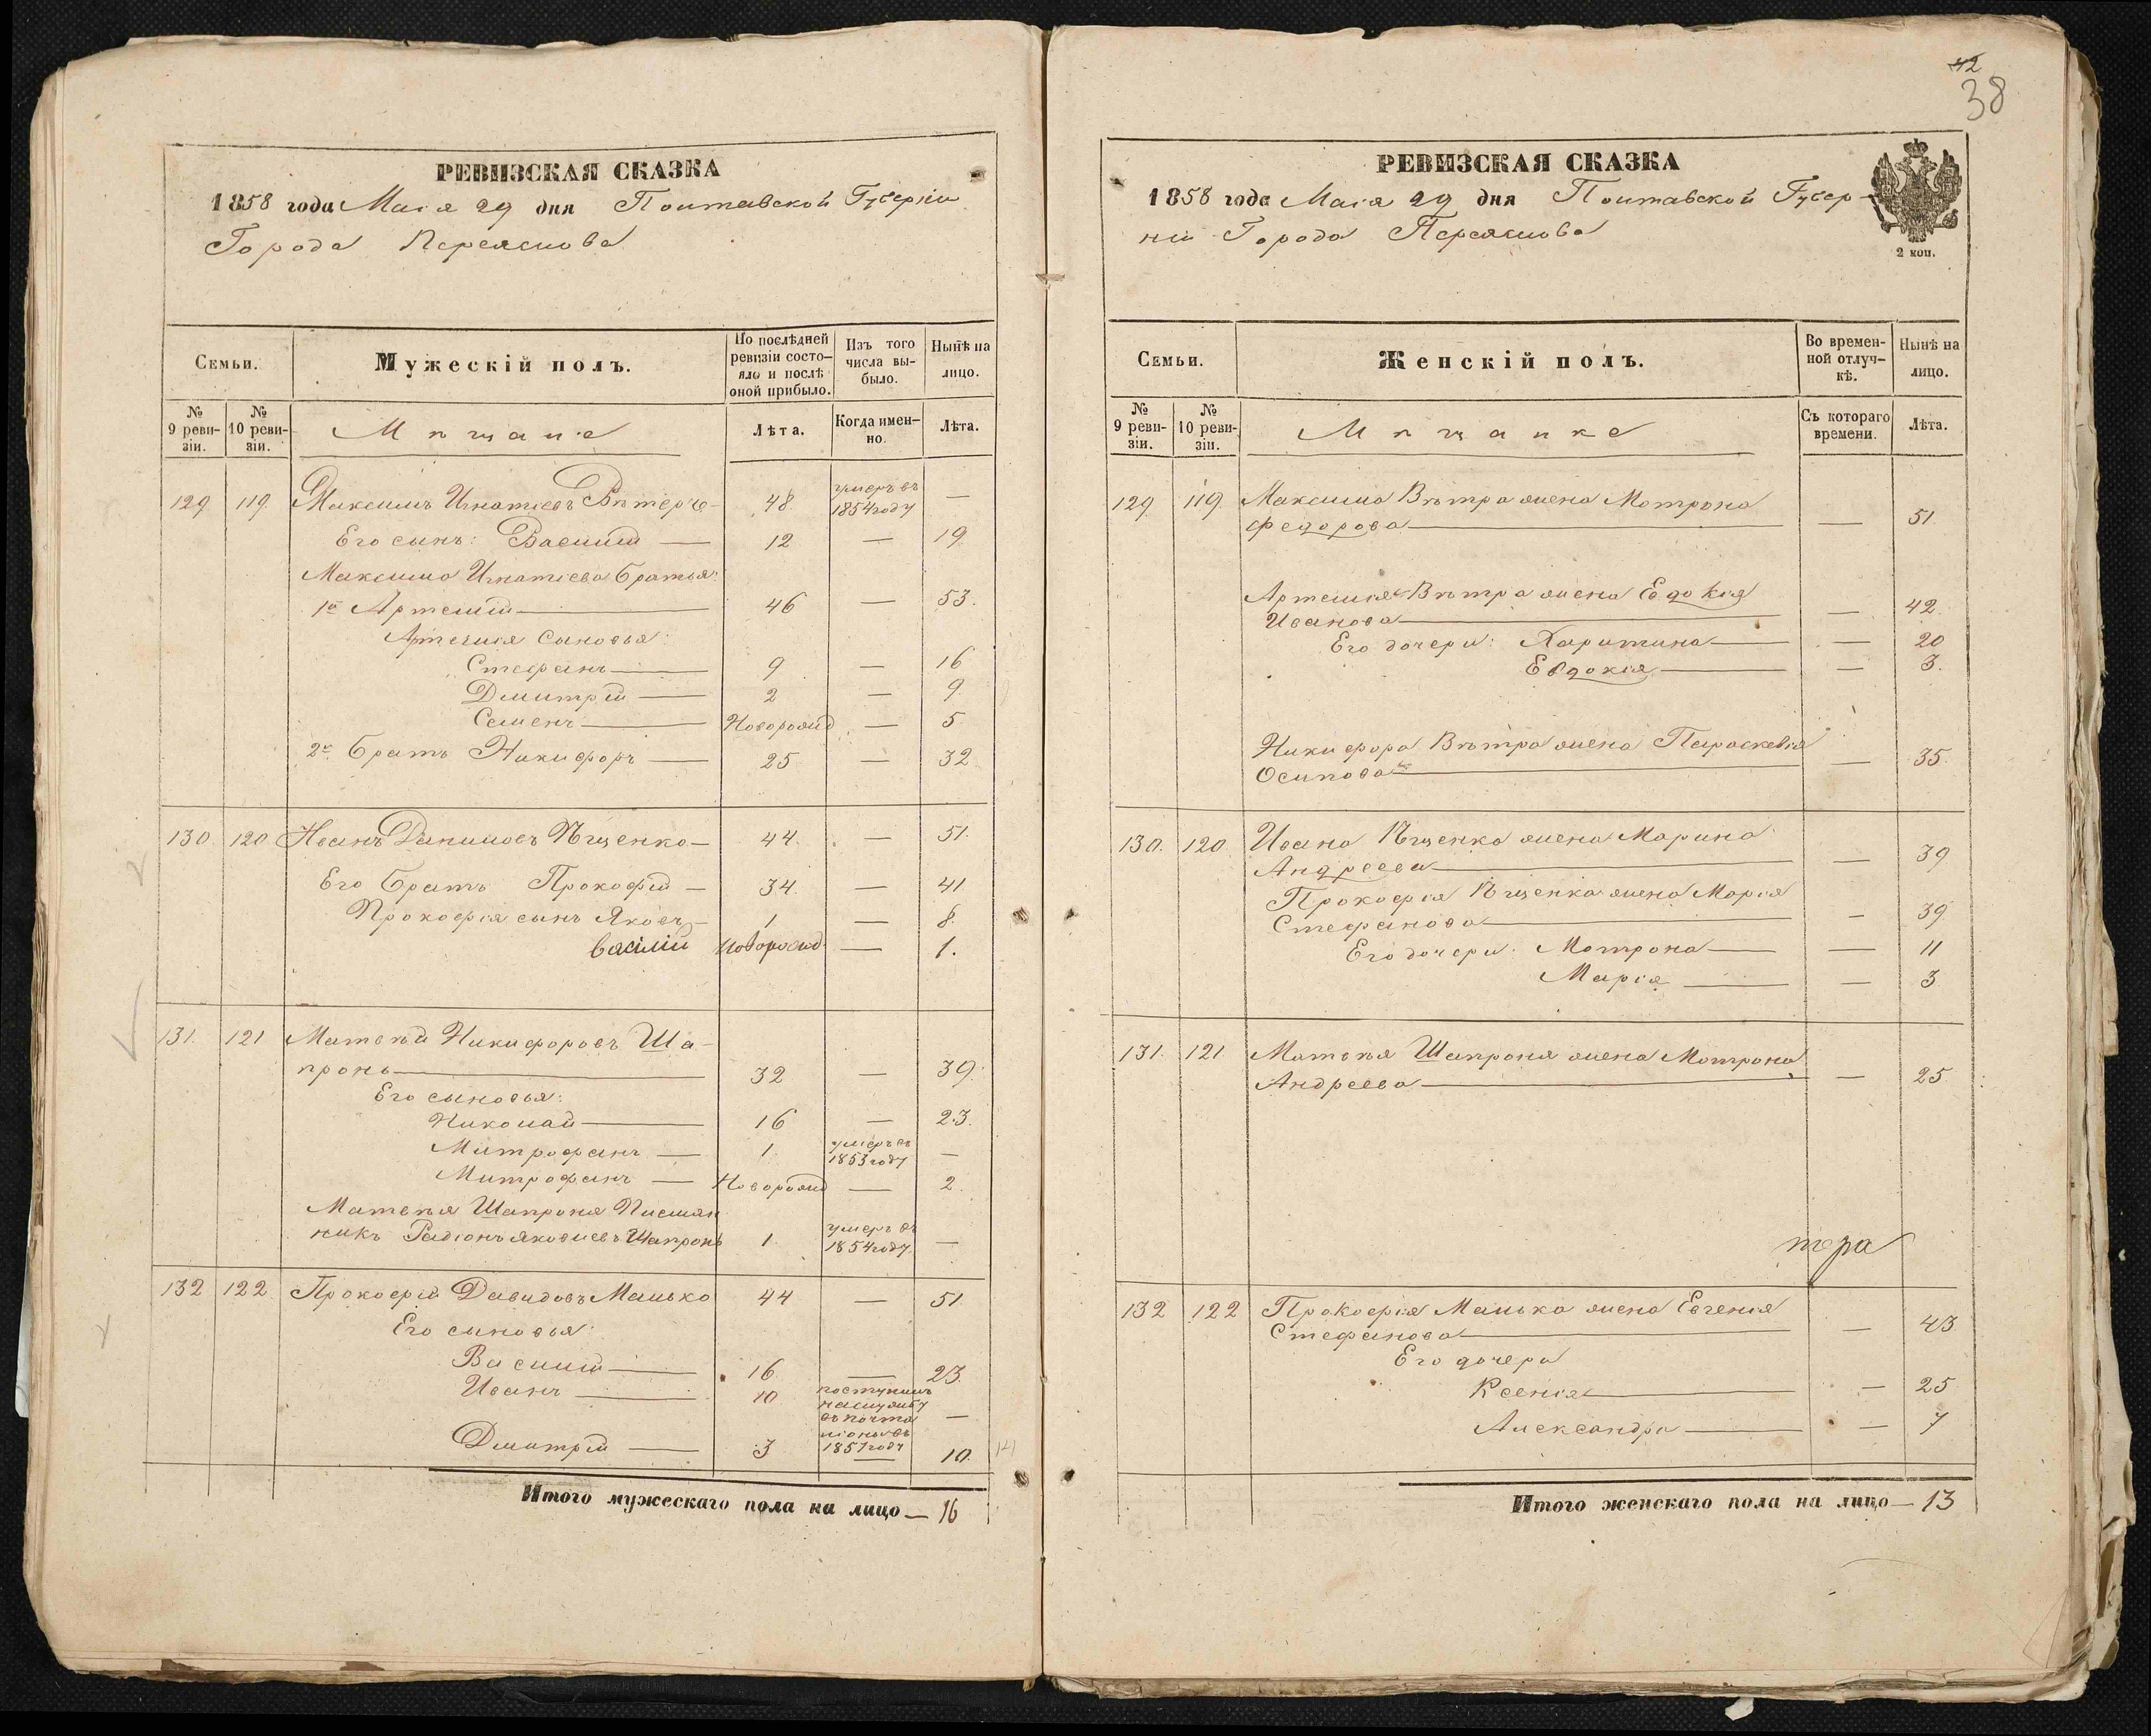 РЕВИЗСКАЯ СКАЗКА
1858 года Маія 29 дня Полтавской Губерніи
Города Переяслова
Семьи.
Мужескій полъ.
По послѣдней ревизіи состояло и послѣ оной прибыло.
Изъ того числа выбыло.
Нынѣ на лицо.
№ 9 ревизіи.
№ 10 ревизіи.
Мѣщане
Лѣта.
Когда именно.
Лѣта.
129 119 Максимъ Игнатіевъ 48 умеръ въ 1854 году —
Его сынъ: Василій — 12 — 19
Максима Игнатіева братья:
1й Артемій — 46 — 53.
Артемія Сыновья:
Стефанъ — 9 — 16
Дмитрій — 2 — 9
Семенъ — Новорожд. — 5
2й братъ Никифоръ — 25 — 32
130. 120 Иванъ Даниловъ Ѣщенко — 44. — 51.
Его братъ Прокофій — 34. — 41
Прокофія сынъ Яковъ — 1 — 8.
Василій Новорожд. — 1.
131. 121 Матвѣй Никифоровъ Ша-
пронь — 32 — 39.
Его сыновья:
Николай — 16 — 23.
Митрофанъ — 1. умеръ въ 1853 году —
Митрофанъ — Новорожд — 2.
Матвѣя Шапроня Племян
никъ Радіонъ Яковлевъ Шапронь 1. умеръ въ 1854 году. —
132 122 Прокофій Давидовъ Малько 44 — 51
Его сыновья:
Василій — 16 — 23.
Иванъ — 10 поступилъ на службу въ почталіоны въ 1851 году —
Дмитрій — 3 — 10.
Итого мужескаго пола на лицо — 16
42
38
РЕВИЗСКАЯ СКАЗКА
1858 года Маія 29 дня Полтавской Губер-
ніи Города Переяслова
2 коп.
Семьи.
Женскій полъ.
Во временной отлучкѣ.
Нынѣ на лицо.
№ 9 ревизіи.
№ 10 ревизіи.
Мѣщанке
Съ котораго времени.
Лѣта.
129 119. Максима Вѣтра жена Мотрона
Федорова — — 51.
Артемія Вѣтра жена Евдокія
Иванова — — 42.
Его дочери: Харитина — — 20
Евдокія — — 3.
Никифора Вѣтра жена Параскевія
Осипова — — 35.
130. 120. Ивана Ѣщенка жена Марина
Андреева — — 39
Прокофія Ѣщенка жена Марія
Стефанова — — 39
Его дочери: Мотрона — — 11
Марія — — 3
131. 121. Матвѣя Шапроня жена Мотрона
Андреева — — 25
132 122 Прокофія Малька жена Евгенія
Стефанова — — 43
Его дочери
Ксенія — — 25
Александра — — 7
Итого женскаго пола на лицо — 13